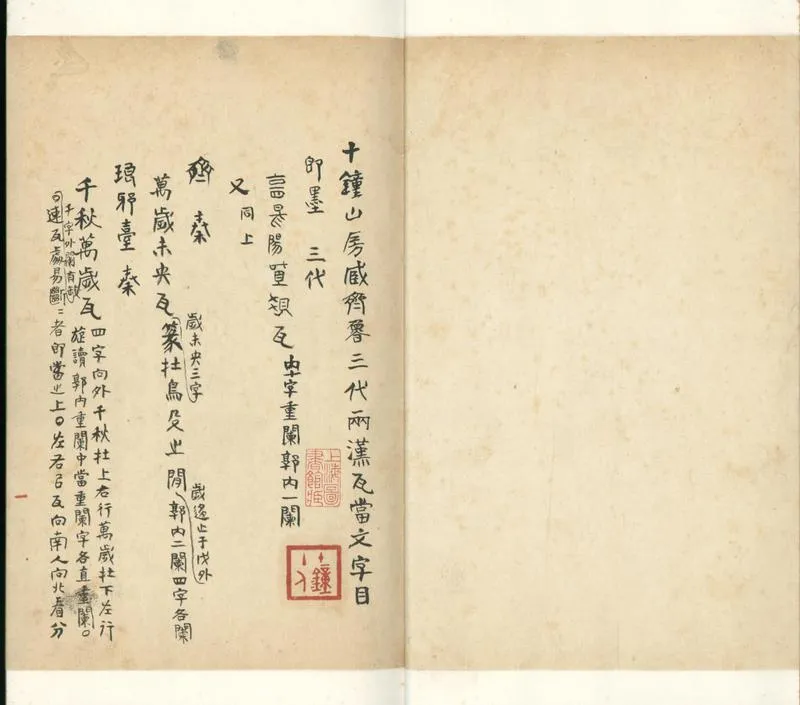 十鐘山房藏齊魯三代兩漢瓦當文字目
即墨 三代
陽 瓦 內十字重闌郭內一闌
又同上
齊 秦
萬歲未央瓦 歲未央三字
篆在鳥 之間 歲 止于戊外
郭內二闌四字各闌
琅邪臺 秦
千秋萬歲瓦 四字向外千秋在上右行萬歲在下左行
旋讀郭內重闌中當重闌字各直重闌
千字外闌有
瓦 易斷 者即當之上 左右 瓦向南人向北看分
上海圖書館藏
十鐘